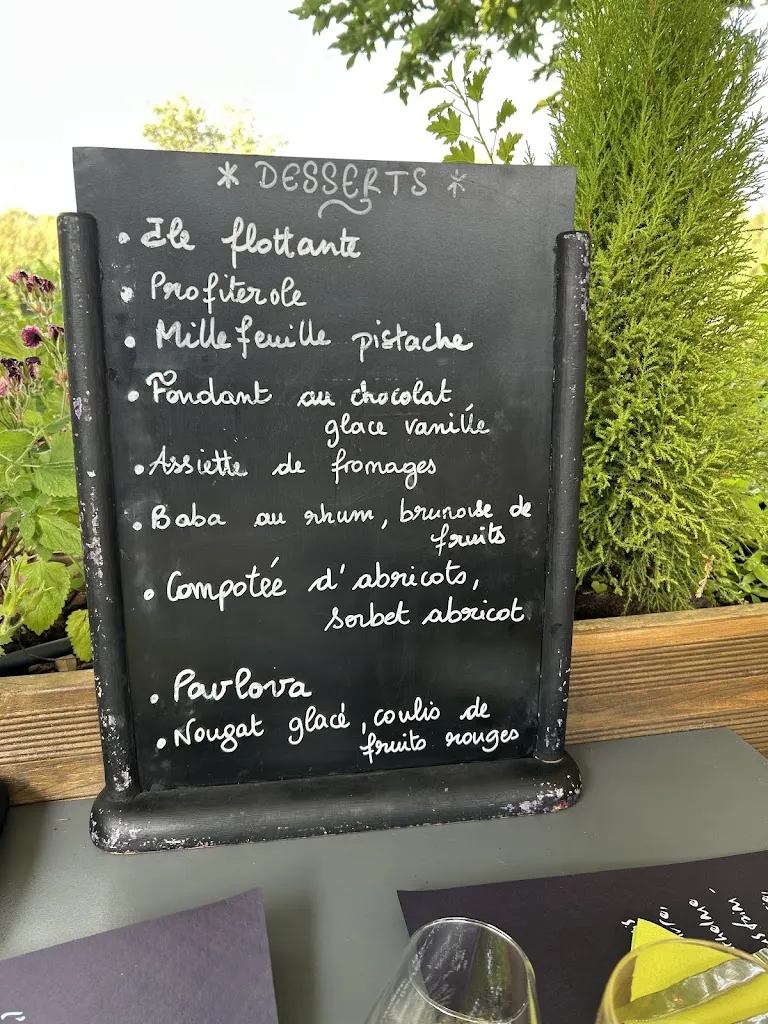 * DESSERTS *
• Ile flottante
• Profiterole
• Millefeuille pistache
• Fondant au chocolat,
glace vanille
• Assiette de fromages
• Baba au rhum, brunoise de
fruits
• Compotée d'abricots,
sorbet abricot
• Pavlova
• Nougat glacé, coulis de
fruits rouges